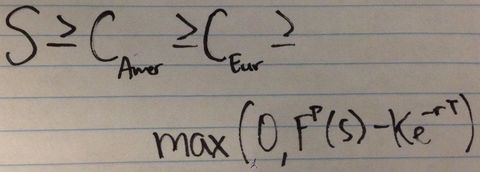 S ≥ C_Amer ≥ C_Eur ≥
max(0, F^P(S) - Ke^{-rT})